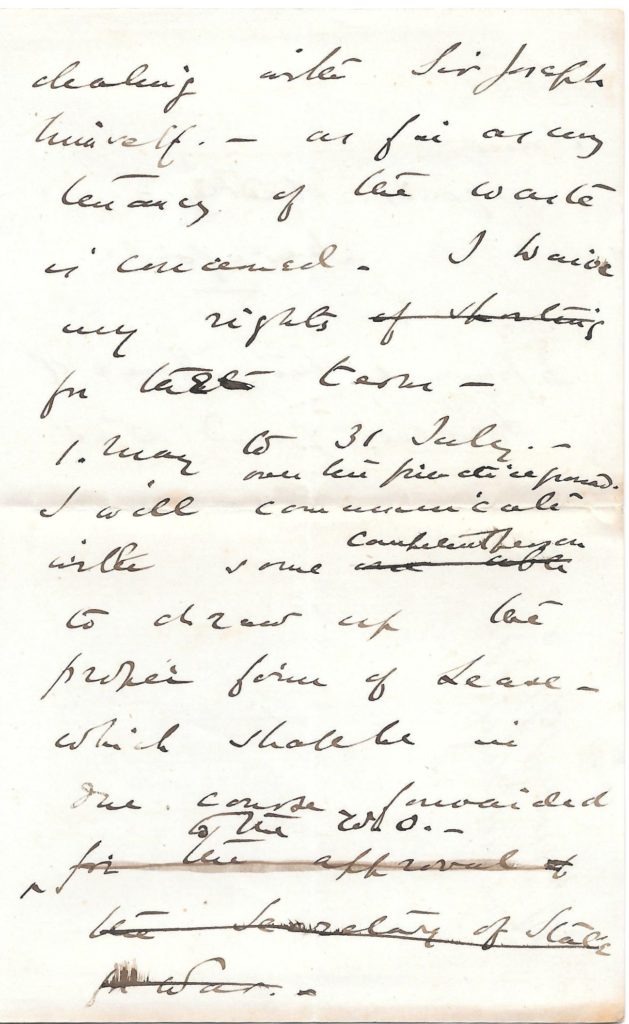 dealing with Sir Joseph
himself. – as far as my
tenancy of the waste
is concerned – I waive
my rights of shooting
for that term –
1. May to 31 July. –
over the private ground.
I will communicate
competent person
with some one able
to draw up the
proper form of Lease –
which shall be in
due course forwarded
to the W.O. –
for the approval of
the Secretary of State
for War. –